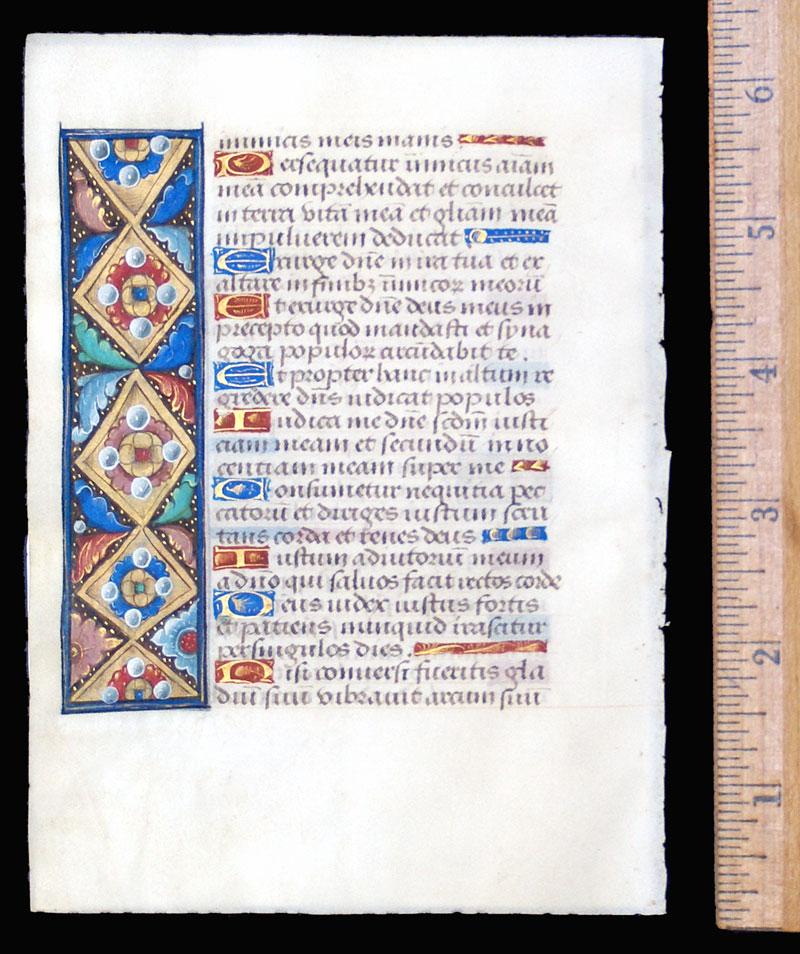 inimicis meis inanis
Persequatur inimicus aīam
meā comprehendat et conculcet
in terra vitā meā et gl̄iam meā
in pulverem deducat
Exurge dn̄e in ira tua et ex
altare in finibꝫ inimicoꝝ meorū
Et exurge dn̄e deus meus in
precepto quod mandasti et syna
goga populoꝝ circūdabit te.
Et propter hanc in altum re
gredere dn̄s iudicat populos
Iudica me dn̄e scd̄m iusti
ciam meam et secundū inno
centiam meam super me
Consumetur nequitia pec
catorū et diriges iustum scru
tans corda et renes deus
Iustum adiutoriū meum
a dn̄o qui salvos facit rectos corde
Deus iudex iustus fortis
et patiens nunquid irascitur
per singulos dies.
Nisi conversi fueritis gla
diū suū vibravit arcum suū
6
5
4
3
2
1